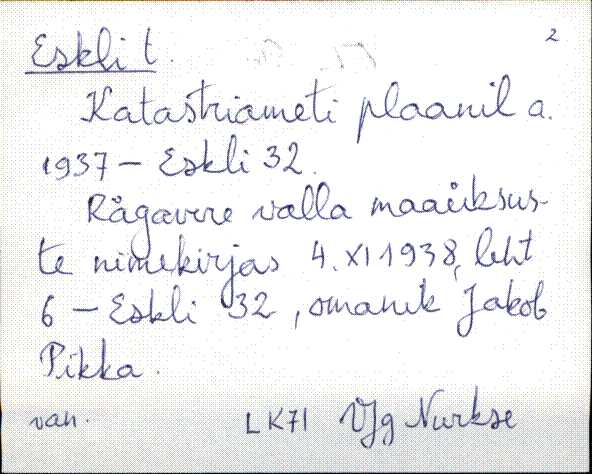 2
Eskli t.
Katastriameti plaanil a.
1937 – Eskli 32.
Rägavere valla maaüksus-
te nimekirjas 4. XI 1938, leht
6 – Eskli 32, omanik Jakob
Pikka.
van. LK71 VJg Nurkse